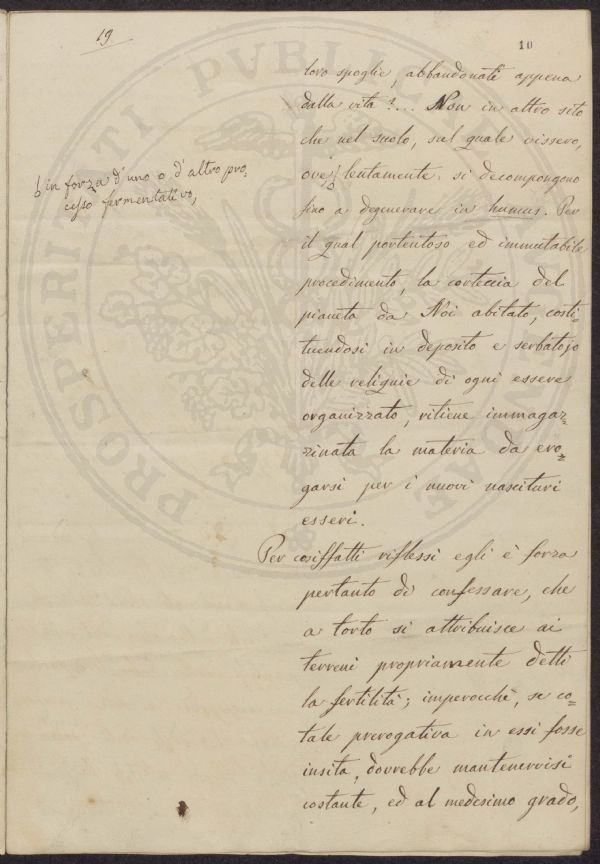 19
10
loro spoglie, abbandonate appena
dalla vita?... Non in altro sito
che nel suolo, sul quale vissero,
ove, lentamente si decompongono
fino a degenerare in humus. Per
il qual portentoso ed immutabile
procedimento, la corteccia del
pianeta da Noi abitato, costi=
tuendosi in deposito e serbatojo
delle reliquie di ogni essere
organizzato, ritiene immagaz=
zinata la materia da ero=
garsi per i nuovi nascituri
esseri.
Per cosiffatti riflessi egli è forza
pertanto di confessare, che
a torto si attribuisce ai
terreni propriamente detti
la fertilità; imperocchè, se co=
tale prerogativa in essi fosse
insita, dovrebbe mantenervisi
costante, ed al medesimo grado,
in forza d'uno o d'altro pro=
cesso fermentativo,
PROSPERITATI PUBLICAE